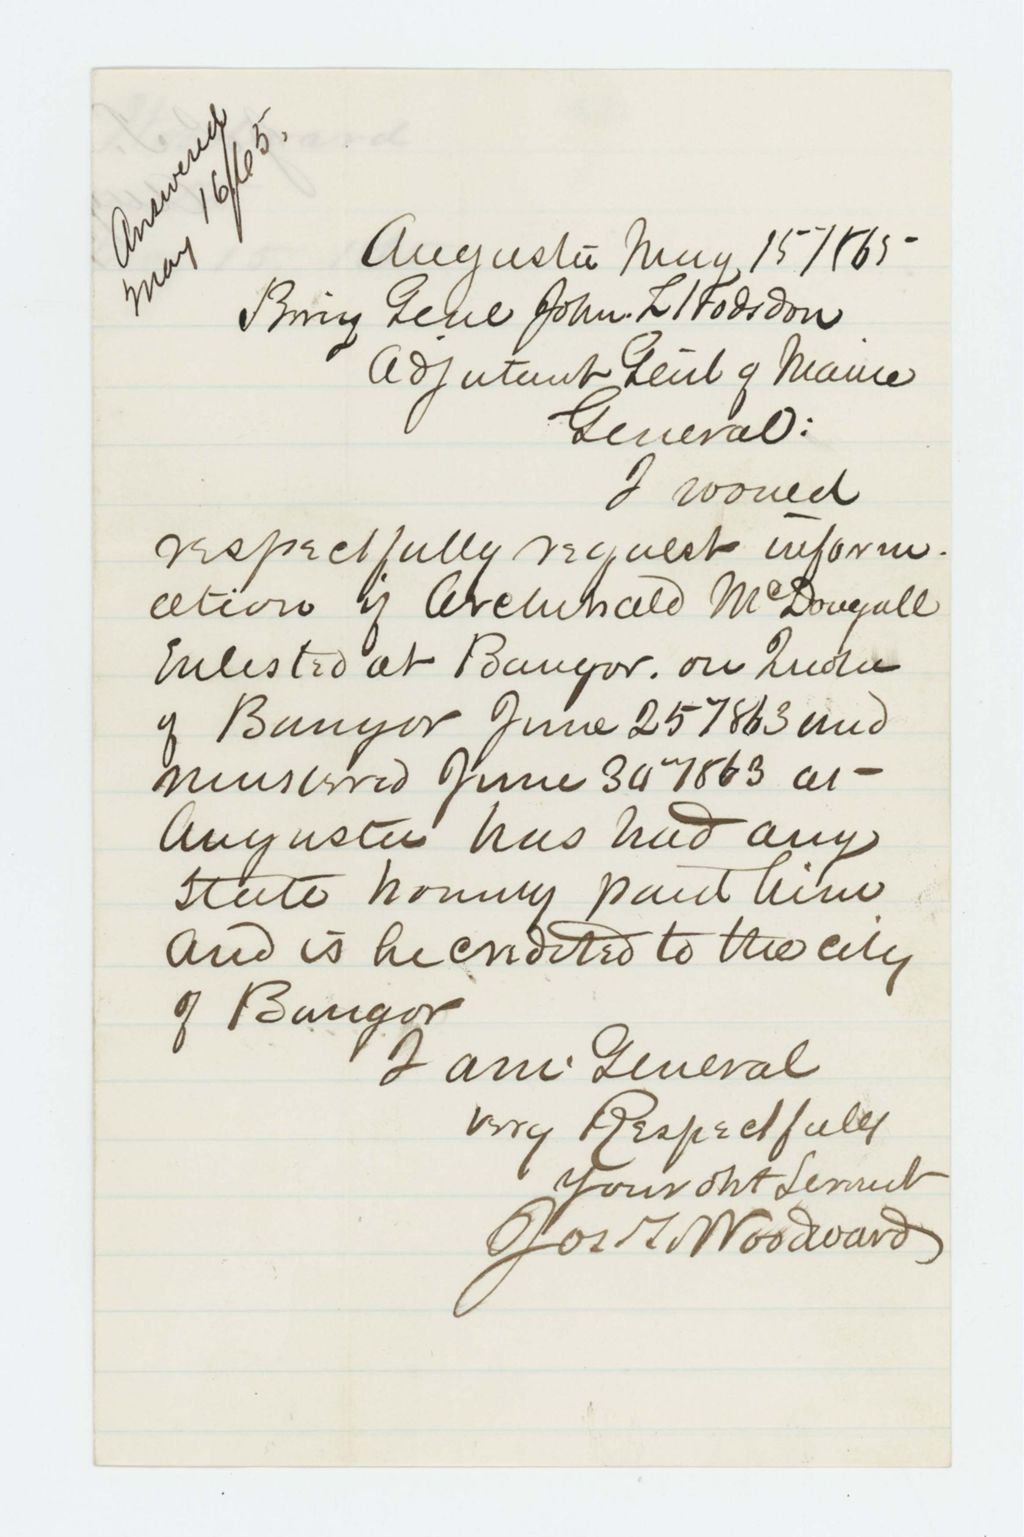 Answered
May 16/65.
Augusta May 15 1865
Brig Genl John. L Hodsdon
Adjutant Genl of Maine
General:
I would
respectfully request inform-
ation if Archibald McDougall
Enlisted at Bangor. on
of Bangor June 25 1863 and
mustered June 30 1863 at
Augusta has had any
State bounty paid him
and is he credited to the city
of Bangor
I am General
very Respectfully
Your obt Servant
Jos T. Woodward